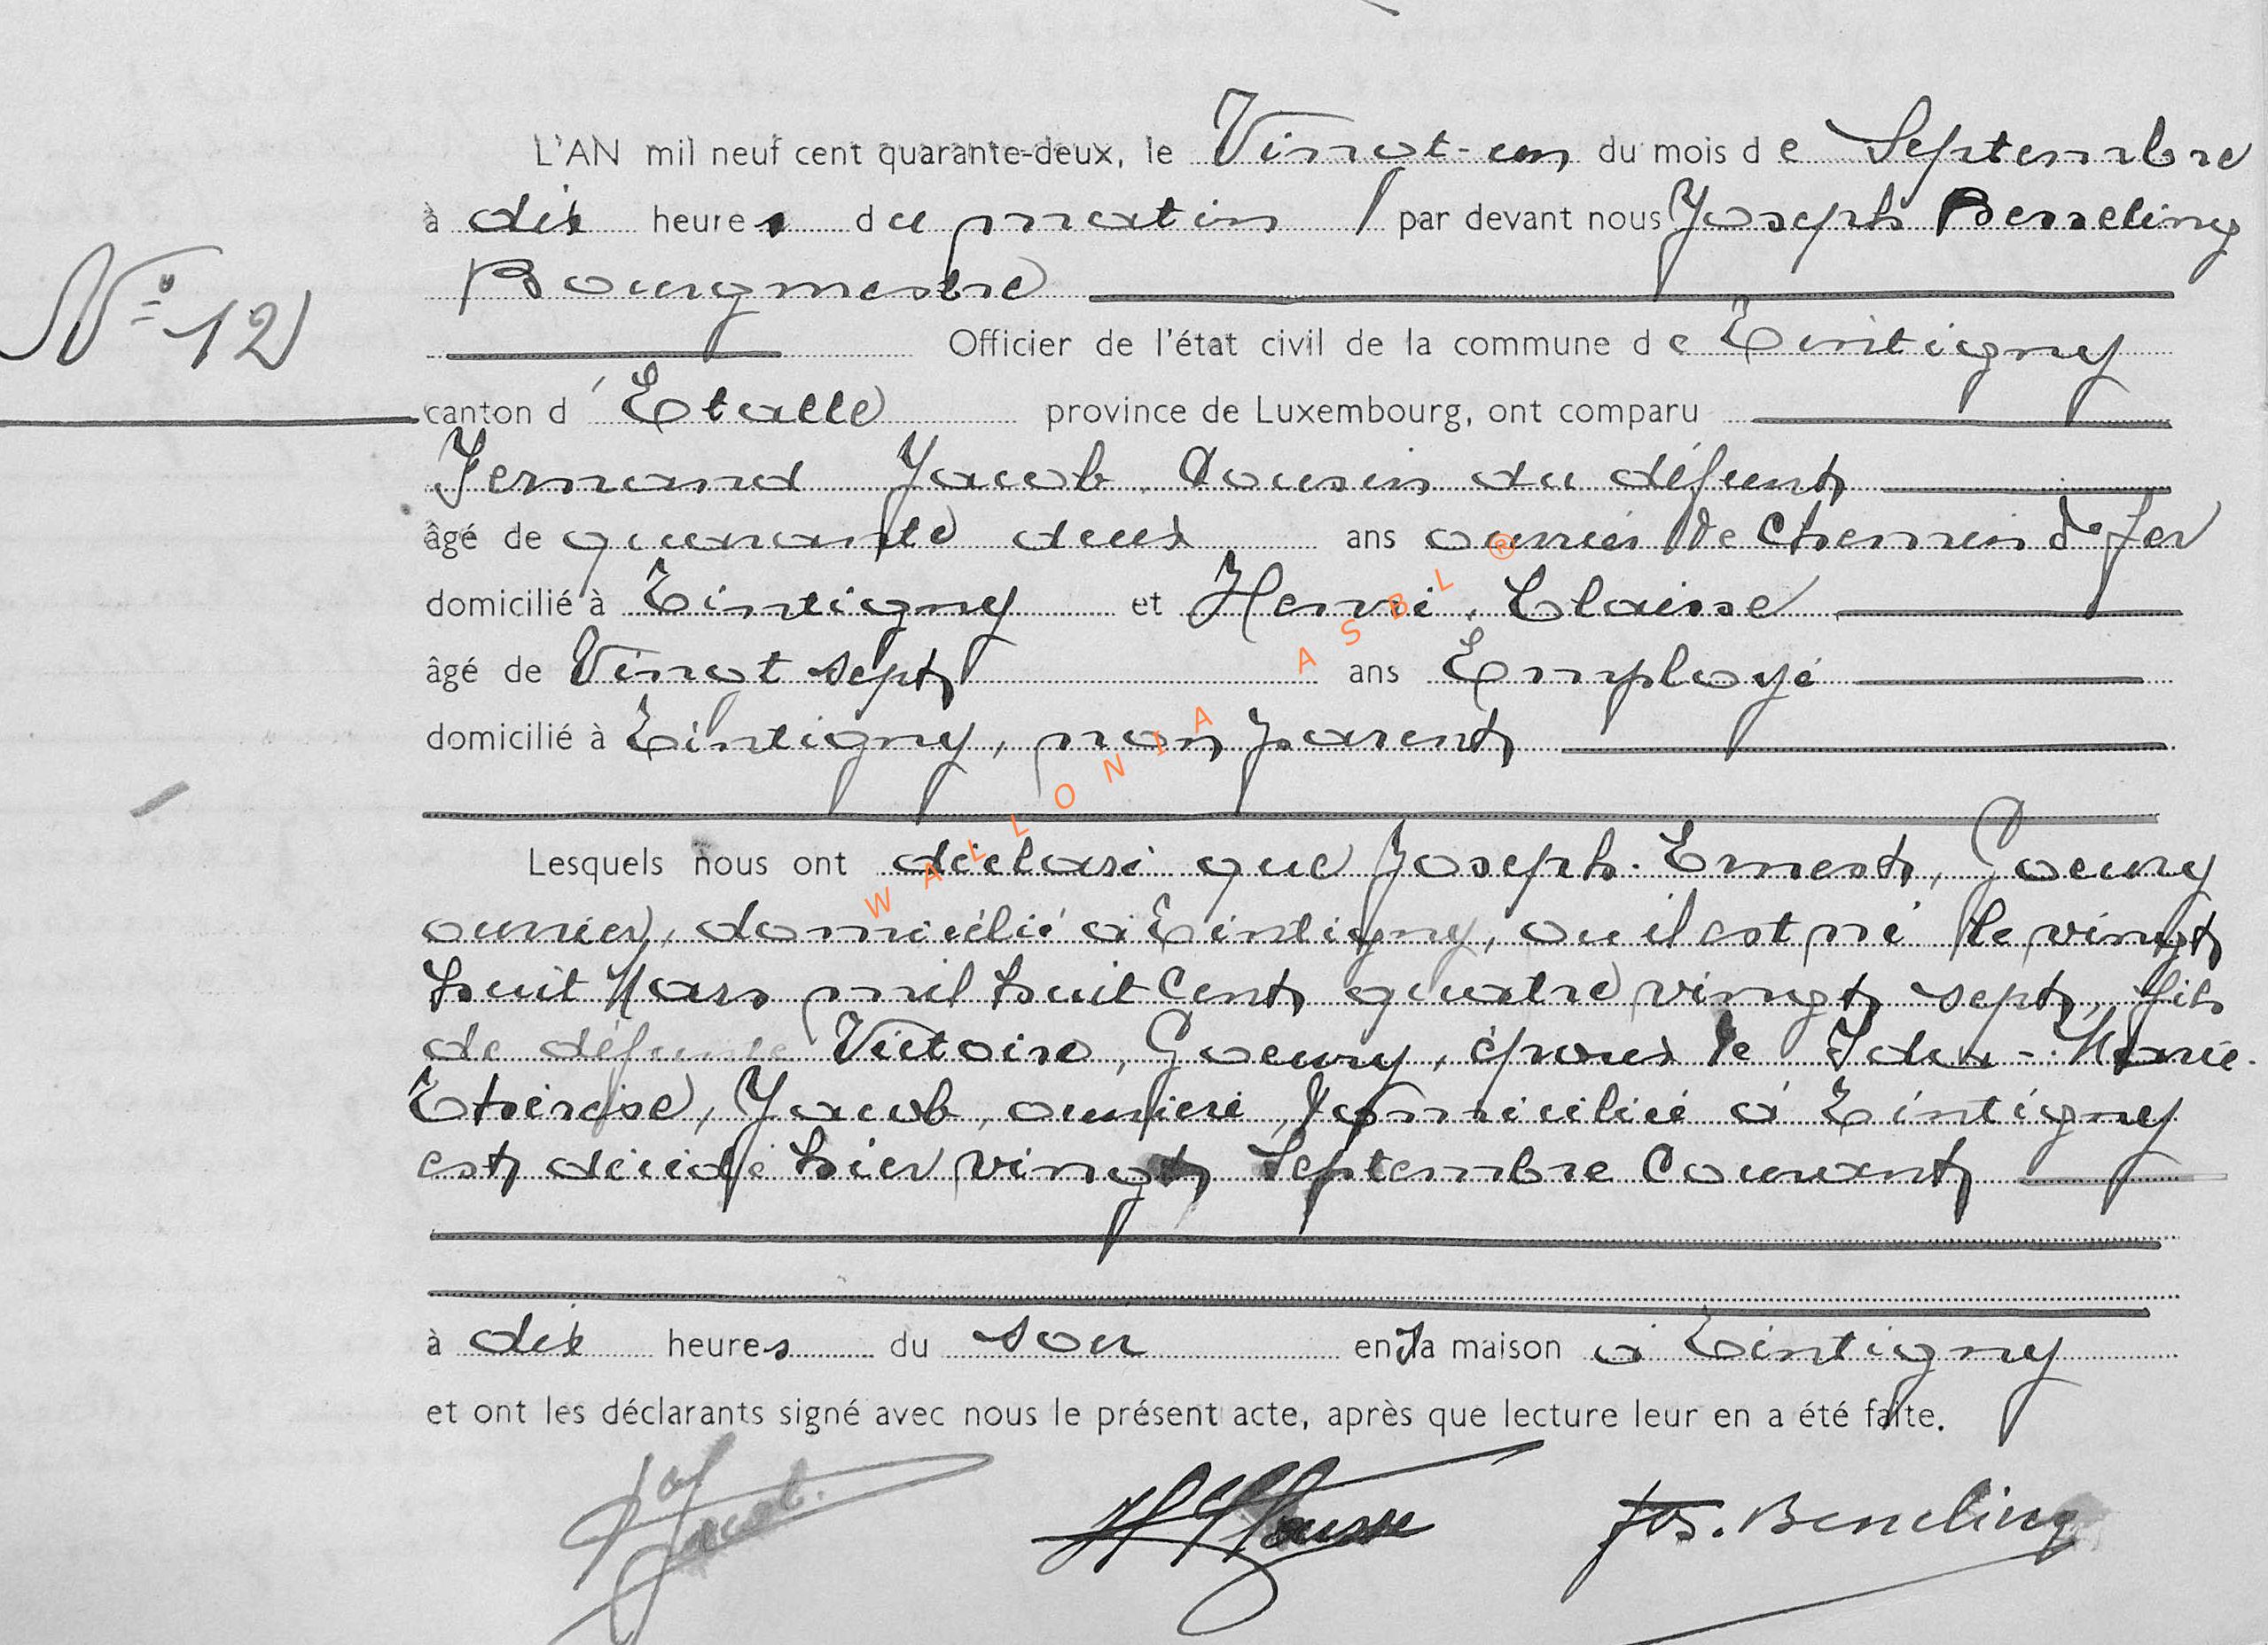 L'AN mil neuf cent quarante-deux, le Vingt-un du mois de Septembre
à dix heures du matin par devant nous Joseph Besseling
Bourgmestre
N° 12
Officier de l'état civil de la commune de Tintigny
canton d'Etalle province de Luxembourg, ont comparu
Fernand Jacob, Cousin du défunt
âgé de quarante deux ans ouvrier de chemin de fer
domicilié à Tintigny et Henri, Claisse
âgé de Vingt sept ans Employé
domicilié à Tintigny, non parent
Lesquels nous ont déclaré que Joseph-Ernest, Goeury
ouvrier, domicilié à Tintigny, ou il est né le vingt
huit Mars mil huit Cent quatre vingt sept, fils
de défunte Victoire, Goeury, époux de Ida-Marie-
Thérèse, Jacob, domiciliée à Tintigny
est décédé hier vingt Septembre Courant
à dix heures du soir en sa maison à Tintigny
et ont les déclarants signé avec nous le présent acte, après que lecture leur en a été faite.
Jacob. H Claisse Jos. Besseling
WALLONIA ASBL ®